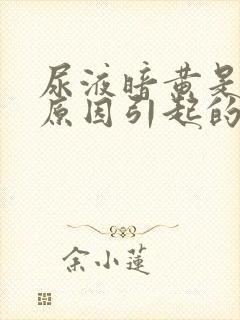 尿液暗黄是
原因引起的
余小莲